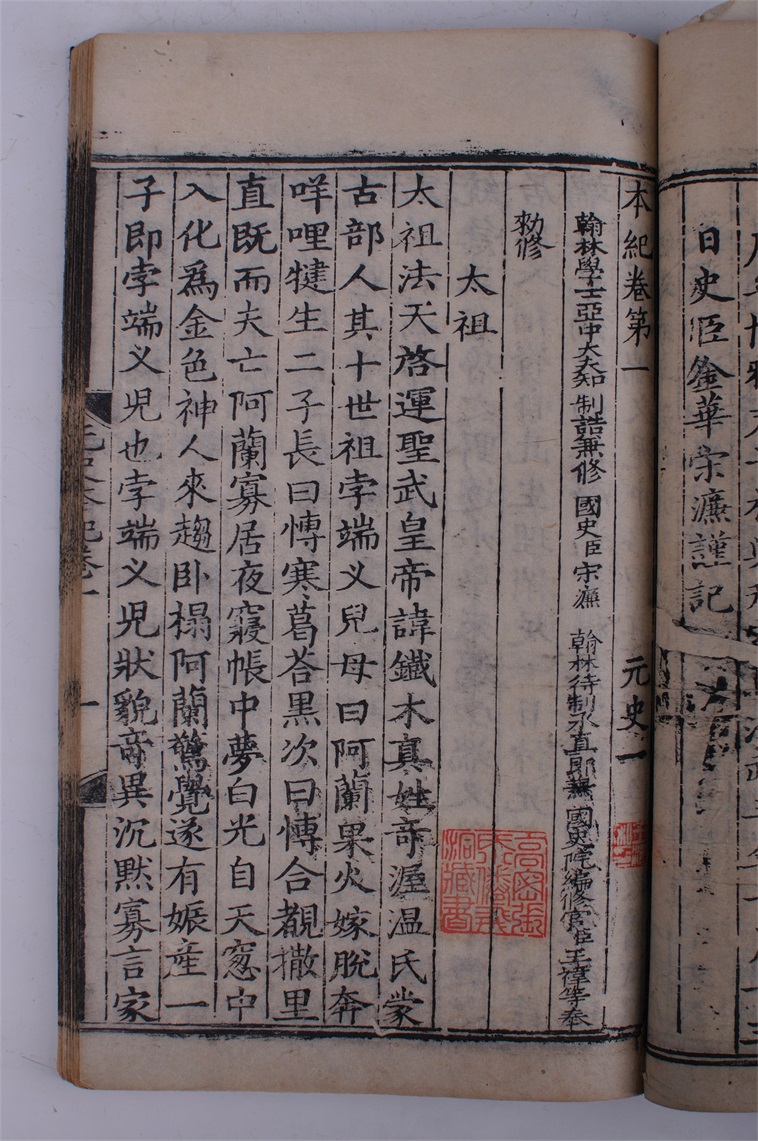 日史臣金華宋濂謹記
本紀卷第一 元史一
翰林學士亞中大夫知制誥兼修國史臣宋濂 翰林待制承直郎兼國史院編修官臣王禕等奉
勑修
太祖
太祖法天啓運聖武皇帝諱鐵木真姓奇渥温氏蒙
古部人其十世祖孛端义兒母曰阿蘭果火嫁脫奔
咩哩犍生二子長曰愽寒葛荅黑次曰愽合覩撒里
直既而夫亡阿蘭寡居夜寢帳中夢白光自天窓中
入化爲金色神人來趨卧榻阿蘭驚覺遂有娠産一
子即孛端义児也孛端义児狀貌奇異沉默寡言家
元史本紀卷一
一